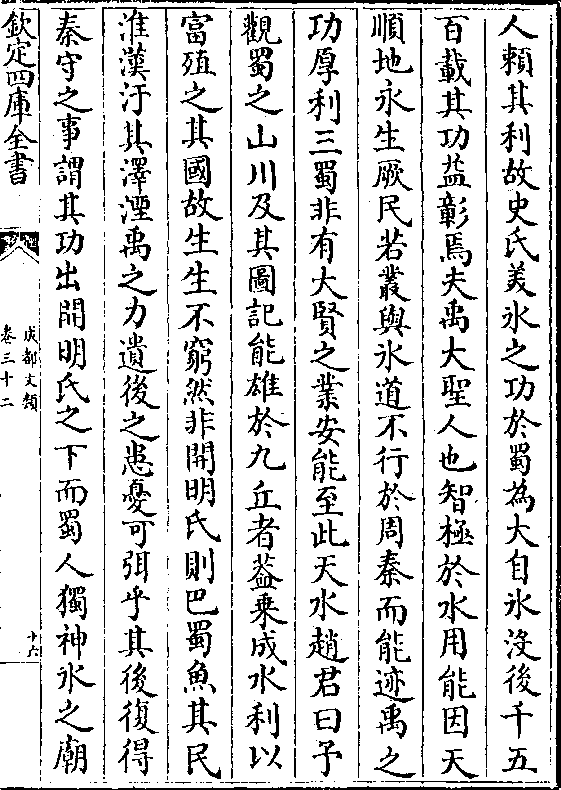 人頼其利故史氏美氷之功於蜀為大自氷沒後千五
百載其功益彰焉夫禹大聖人也智極於水用能因天
順地永生厥民若叢與氷道不行於周秦而能迹禹之
功厚利三蜀非有大賢之業安能至此天水趙君曰予
觀蜀之山川及其圖記能雄於九丘者葢乘成水利以
富殖之其國故生生不窮然非開明氏則巴蜀魚其民
淮漢汙其澤湮禹之力遺後之患憂可弭乎其後復得
秦守之事謂其功出開明氏之下而蜀人獨神氷之廟
欽定四庫全書
成都文類
卷三十二
十六